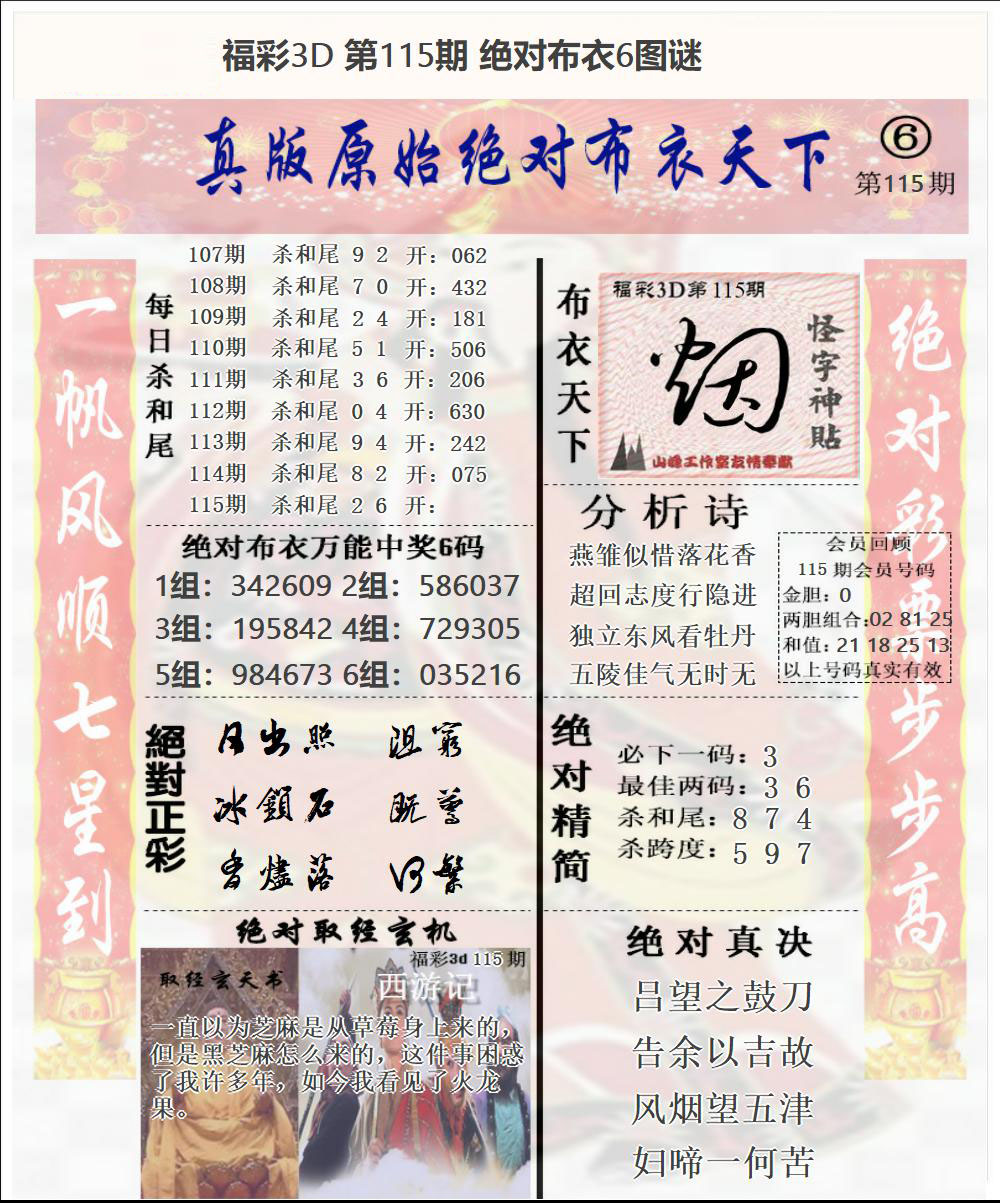 福彩3D 第115期 绝对布衣6图谜
真版原始绝对布衣天下
6
第115期
一帆风顺七星到
每日杀和尾
107期 杀和尾 9 2 开：062
108期 杀和尾 7 0 开：432
109期 杀和尾 2 4 开：181
110期 杀和尾 5 1 开：506
111期 杀和尾 3 6 开：206
112期 杀和尾 0 4 开：630
113期 杀和尾 9 4 开：242
114期 杀和尾 8 2 开：075
115期 杀和尾 2 6 开：
绝对布衣万能中奖6码
1组：342609 2组：586037
3组：195842 4组：729305
5组：984673 6组：035216
絕對正彩
月出照 沮窮
冰鎖石 既尊
香燼落 何繁
绝对取经玄机
福彩3d 115期
取经玄天书
西游记
一直以为芝麻是从草莓身上来的，
但是黑芝麻怎么来的，这件事困惑
了我许多年，如今我看见了火龙
果。
布衣天下
福彩3D第115期
烟
怪字神貼
山峰工作室友情奉献
分析诗
燕雏似惜落花香
超回志度行隐进
独立东风看牡丹
五陵佳气无时无
会员回顾
115期会员号码
金胆：0
两胆组合:02 81 25
和值：21 18 25 13
以上号码真实有效
绝对精简
必下一码：3
最佳两码：3 6
杀和尾：8 7 4
杀跨度：5 9 7
绝对真决
吕望之鼓刀
告余以吉故
风烟望五津
妇啼一何苦
绝对彩票步步高